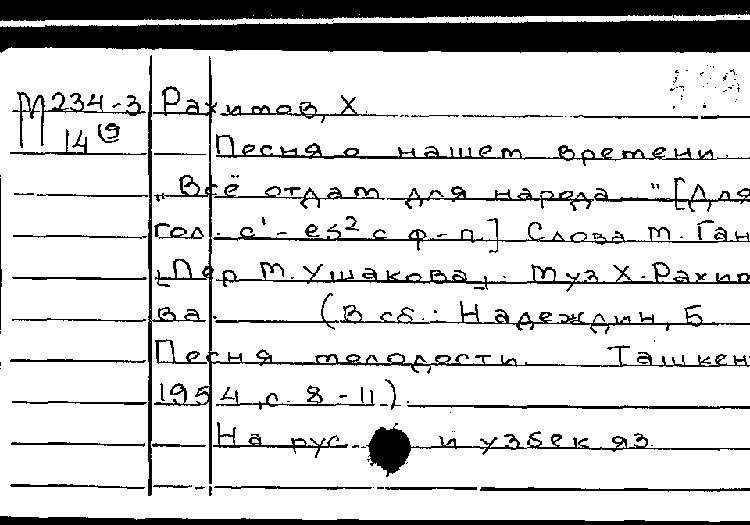 М234-3 Рахимов, Х.
14
Песня о нашем времени.
„Всё отдам для народа" [Для
гол. c'-es² с ф-п.] Слова М. Ган
[Пер М. Ушакова]. Муз Х. Рахим
ва. (В сб.: Надеждин, Б.
Песня молодости. Ташкен
1954, с. 8-11).
На рус. и узбек яз.